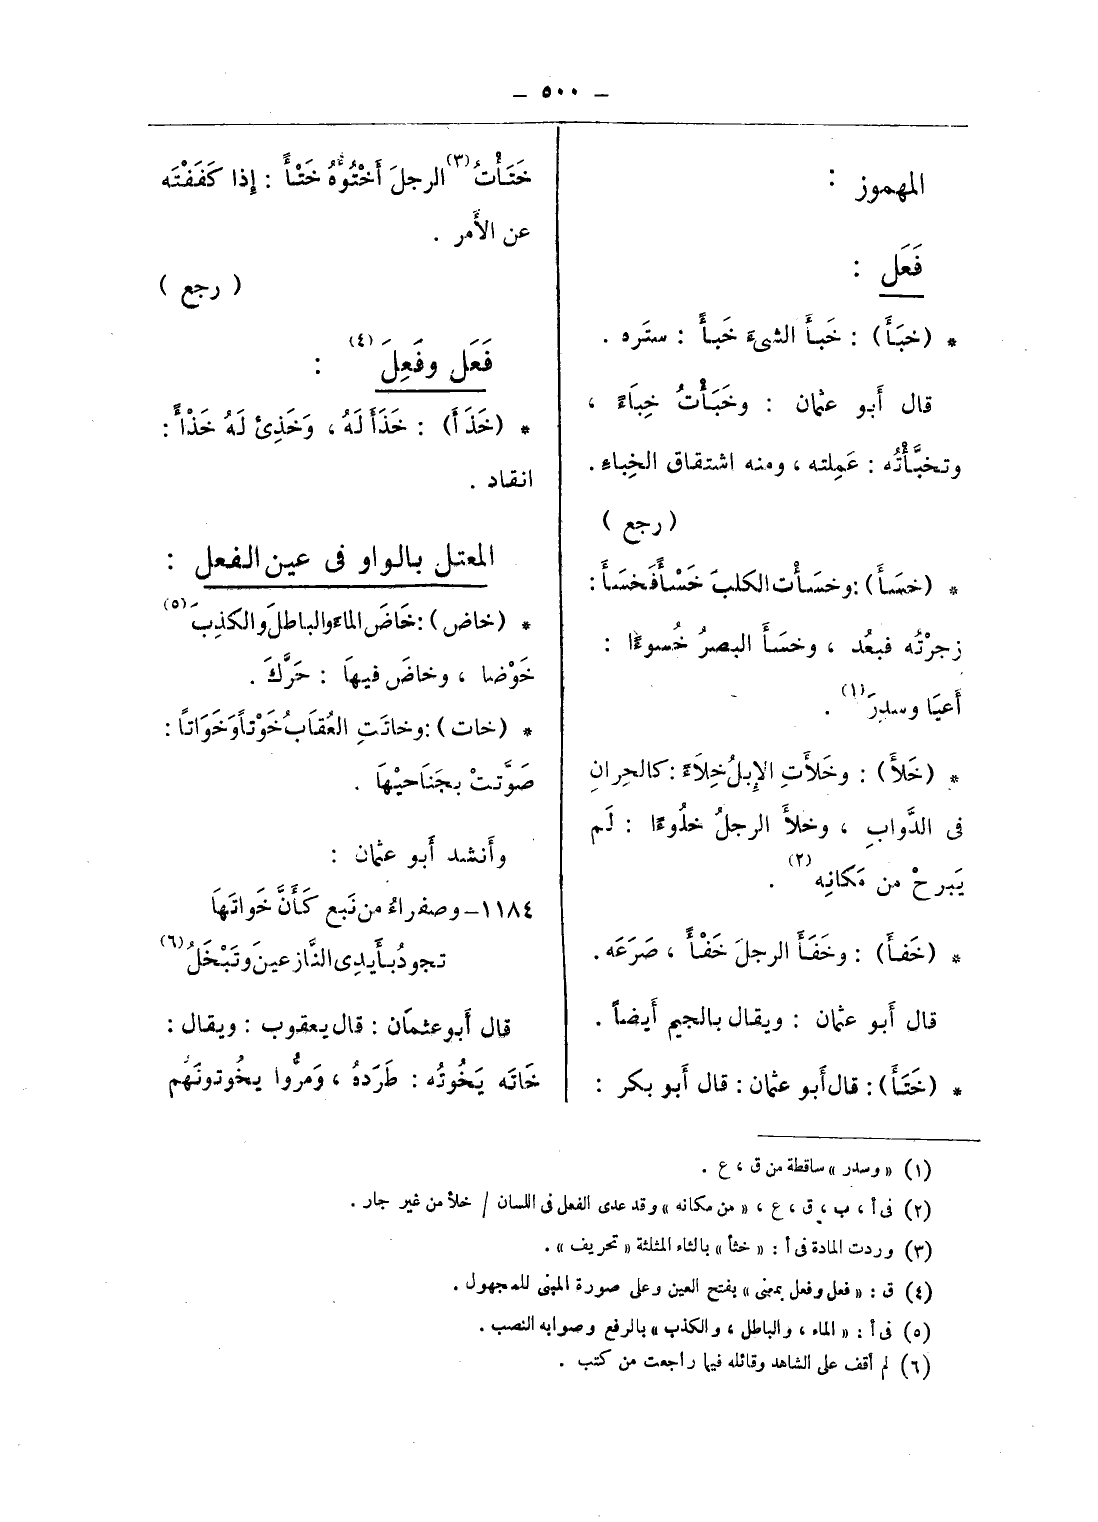 – ٥٠٠ –
المهموز :
فَعَل :
* (خبَأَ) : خَبأَ الشىءَ خَبأً : ستَره .
قال أَبو عثمان : وخَبَأْتُ خِبَاءً ،
وتخبَّأْتُه : عَمِلته ، ومنه اشتقاق الخِباءِ .
( رجع )
* (خسَأَ) : وخسَأْت الكلبَ خَسْأً فَخسَأَ :
زجرْتُه فبعُد ، وخسَأَ البصرُ خُسوءًا :
أَعيَا وسدِرَ (١) .
* (خَلأَ) : وخَلأَتِ الإِبلُ خِلَاءً : كالحِرانِ
فى الدَّوابِ ، وخلأَ الرجلُ خلُوءًا : لَم
يَبرحْ من مَكانِه (٢) .
* (خَفأَ) : وخَفَأَ الرجلَ خَفْأً ، صَرَعَه .
قال أَبو عثمان : ويقال بالجيم أَيضاً .
* (خَتَأَ) : قال أَبو عثمان : قال أَبو بكر :
خَتَأْتُ (٣) الرجلَ أَخْتُوُّهُ خَتْأً : إِذا كَفَفْتَه
عن الأَمر .
( رجع )
فَعَل وفَعِلَ (٤) :
* (خَذَأَ) : خَذَأَ لَهُ ، وَخَذِئَ لَهُ خَذْأً :
انقاد .
المعتل بالواو فى عين الفعل :
* (خاض) : خَاضَ الماءَ والباطلَ والكذِبَ (٥)
خَوْضا ، وخاضَ فيهَا : حَرَّكَ .
* (خات) : وخاتَتِ العُقَابُ خَوْتاً وَخَوَاتاً :
صَوَّتتْ بجَنَاحيْهَا .
وأَنشد أَبو عثمان :
١١٨٤– وصفراءُ من نَبع كَأَنَّ خَواتَهَا
تجودُ بأَيدِى النَّازعينَ وتَبْخَلُ (٦)
قال أَبو عثمَان : قال يعقوب : ويقال :
خَاتَه يَخُوتُه : طَرَدَهُ ، وَمرُّوا يخُوتونَهُم
(١) « وسدر » ساقطة من ق ، ع .
(٢) فى أ ، ب ، ق ، ع ، « من مكانه » وقد عدى الفعل فى اللسان / خلأ من غير جار .
(٣) وردت المادة فى أ : « خثأ » بالثاء المثلثة « تحريف » .
(٤) ق : « فعل وفعل بمعنى » بفتح العين وعلى صورة المبنى للمجهول .
(٥) فى أ : « الماء ، والباطل ، والكذب » بالرفع وصوابه النصب .
(٦) لم أقف على الشاهد وقائله فيما راجعت من كتب .